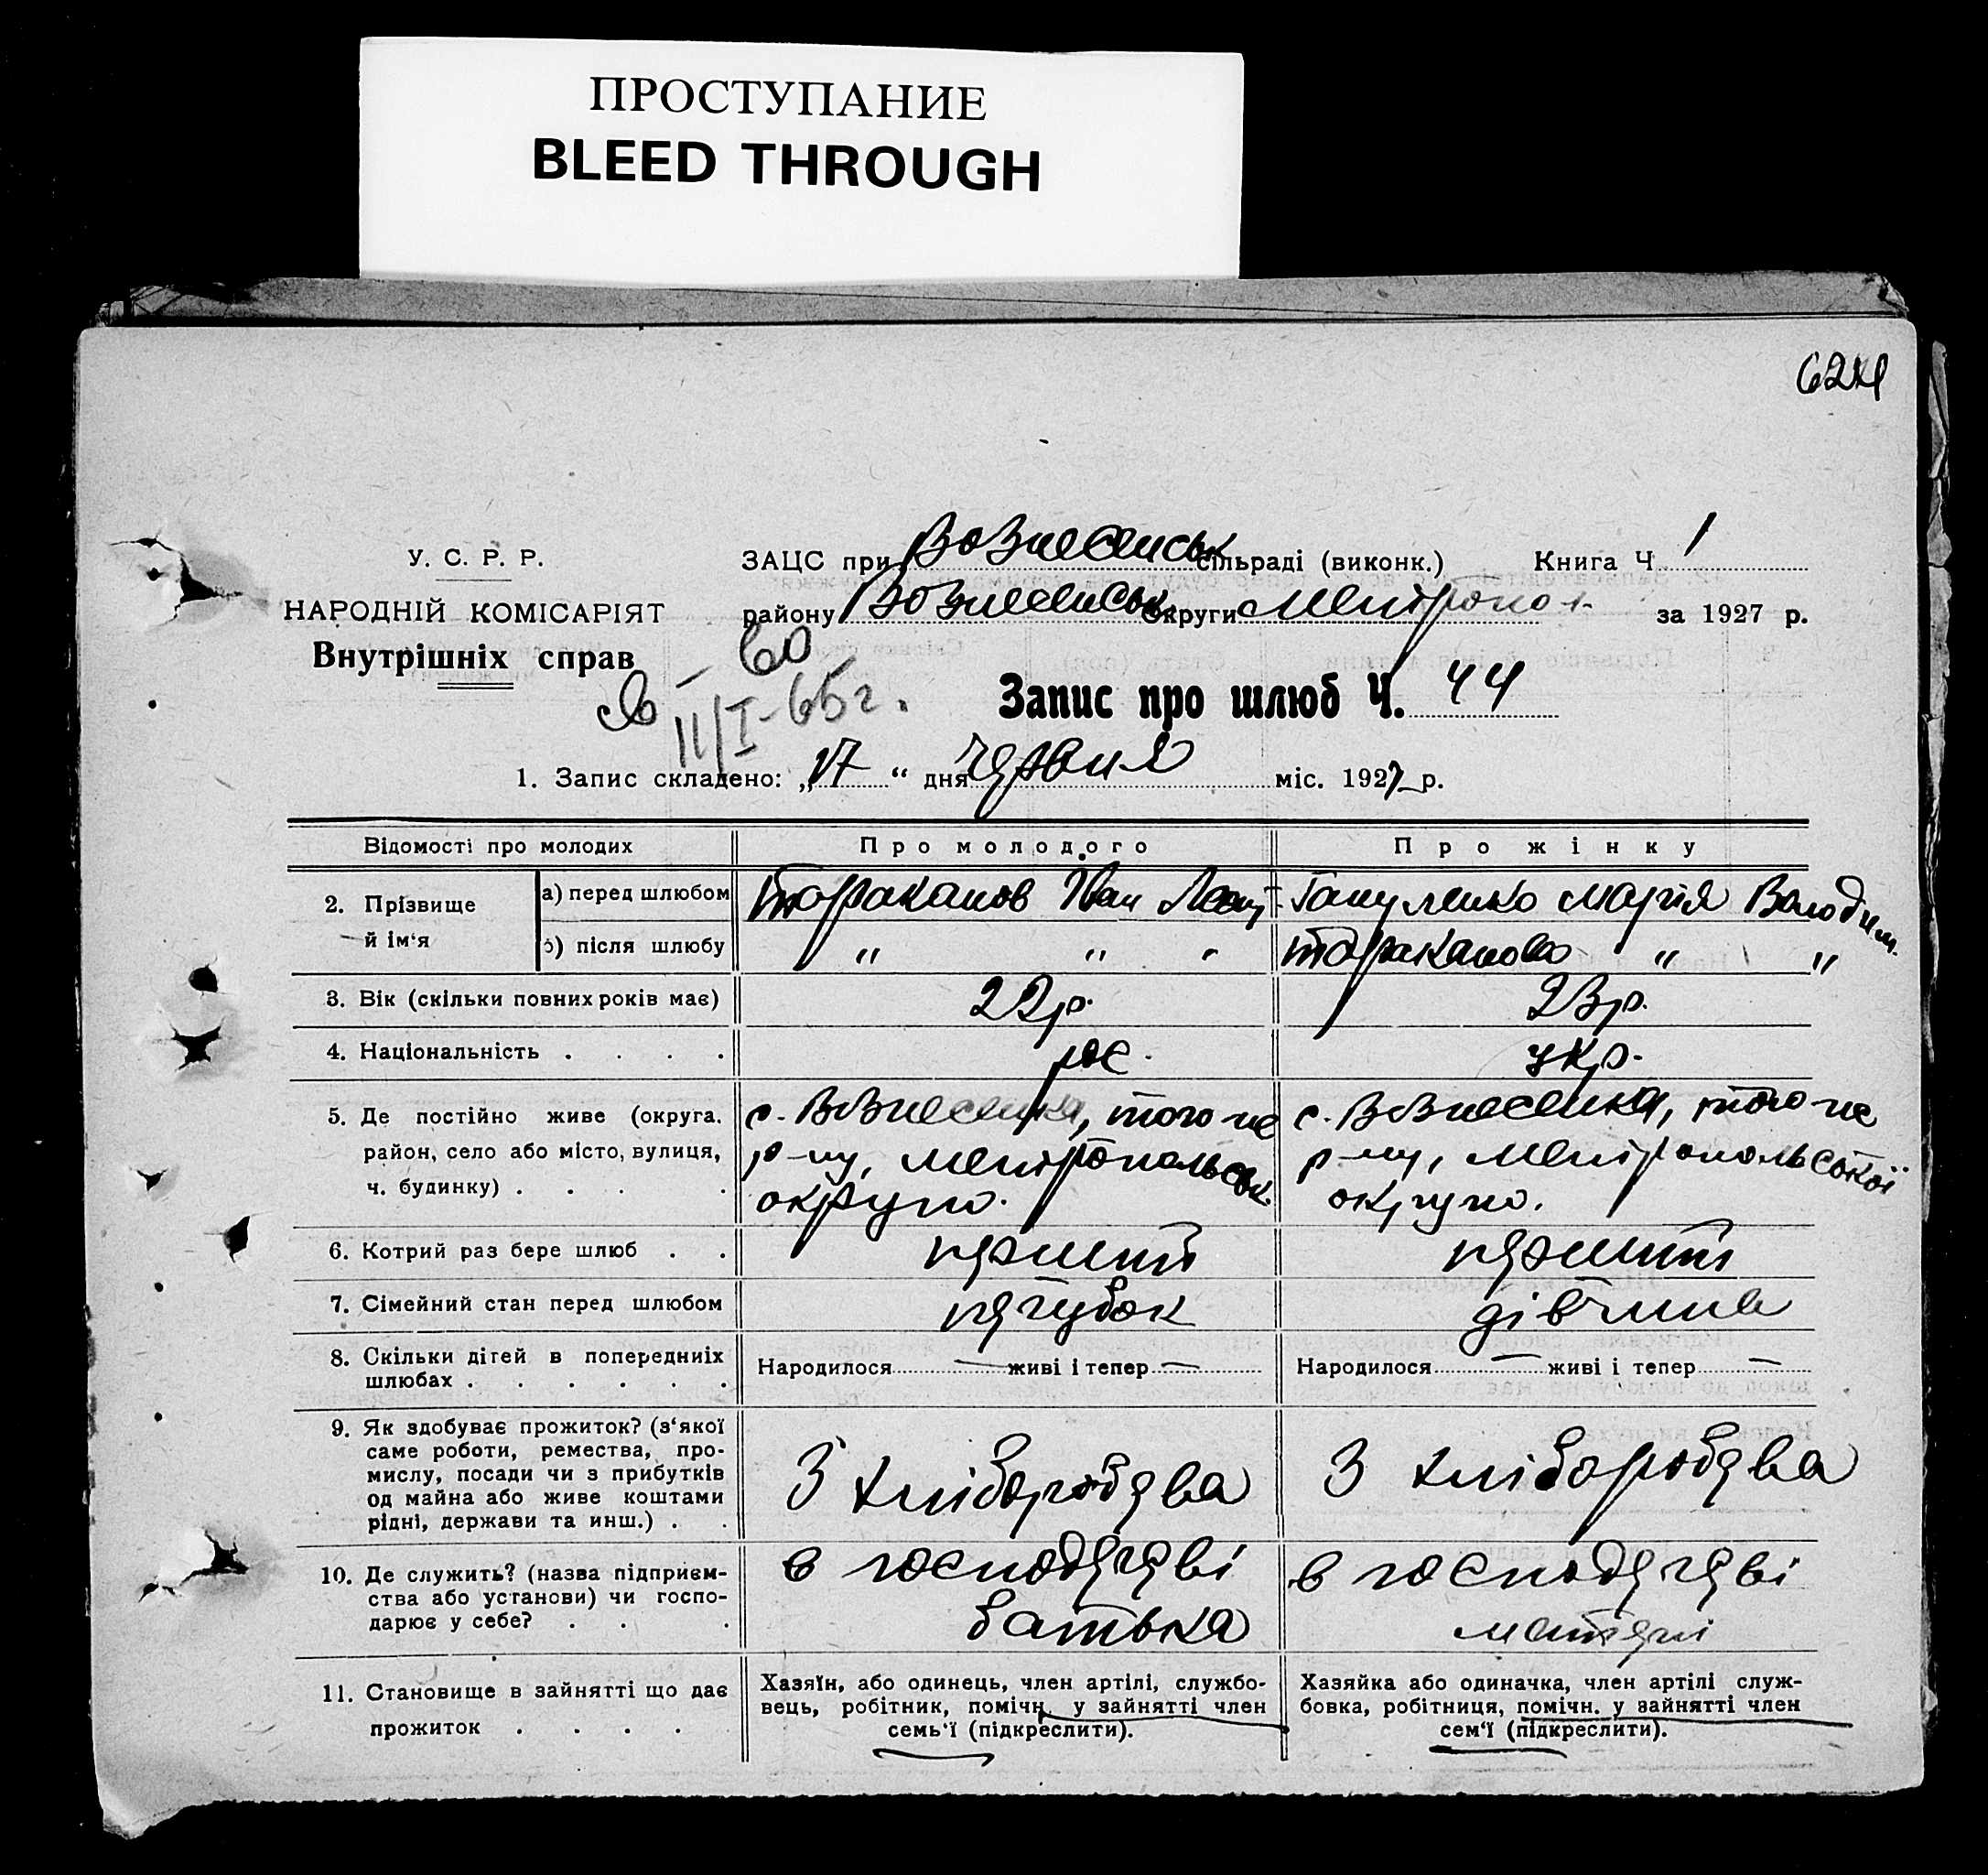 ПРОСТУПАНИЕ
BLEED THROUGH
624
У. С. Р. Р.
НАРОДНІЙ КОМІСАРІЯТ
Внутрішніх справ
ЗАЦС при Вознесенськ сільраді (виконк.) Книга Ч. 1
району Вознесенськ. Округи Мелітропол. за 1927 р.
60
11/I-65г.
Запис про шлюб Ч. 44
1. Запис складено: „17“ дня червня міс. 1927 р.
Відомості про молодих Про молодого Про жінку
2. Прізвище й ім‘я
а) перед шлюбом Тараканов Іван Леонт Гануленко Марія Володим.
б) після шлюбу " " " Тараканова " "
3. Вік (скільки повних років має) 22 р. 23 р.
4. Національність . . . . рос. укр.
5. Де постійно живе (округа.
район, село або місто, вулиця,
ч. будинку) . . . .
с. Вознесенка, того-же
р-ну, Мелітропольськ.
округи.
с. Вознесенка, того-же
р-ну, Мелітропольської
округи.
6. Котрий раз бере шлюб . . перший перший
7. Сімейний стан перед шлюбом парубок дівчина
8. Скільки дітей в попередниіх
шлюбах . . . . . .
Народилося — живі і тепер — Народилося — живі і тепер —
9. Як здобуває прожиток? (з‘якої
саме роботи, ремества, про-
мислу, посади чи з прибутків
од майна або живе коштами
рідні, держави та инш.) . .
З хліборобства З хліборобства
10. Де служить? (назва підприєм-
ства або установи) чи госпо-
дарює у себе? . . .
в господарстві
батька
в господарстві
матері
11. Становище в зайнятті що дає
прожиток . . . .
Хазяїн, або одинець, член артілі, службо-
вець, робітник, помічн. у зайнятті член
семь‘ї (підкреслити).
Хазяйка або одиначка, член артілі служ-
бовка, робітниця, помічн. у зайнятті член
сем‘ї (підкреслити).